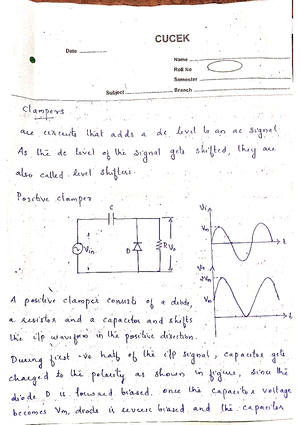 CUCEK
Date
Name
Roll No
Semester
Subject Branch
Clampers
are circuits that adds a dc level to an ac signal
As the dc level of the signal gets shifted, they are
also called level shifters.
Positive clamper
C
Vin
D
R
Vo
Vi
Vm
t
Vo
2Vm
Vm
t
A positive clamper consists of a diode,
a resistor and a capacitor and shifts
the i/p waveform in the positive direction.
During first -ve half of the i/p signal, capacitor gets
charged to the polarity as shown in figure, since the
diode D is forward biased. Once the capacitor voltage
becomes Vm, diode is reverse biased and the capacitor